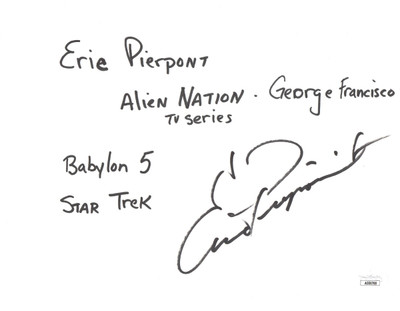 Eric Pierpont
Alien Nation . George Francisco
TV series
Babylon 5
Star Trek
Eric Pierpont